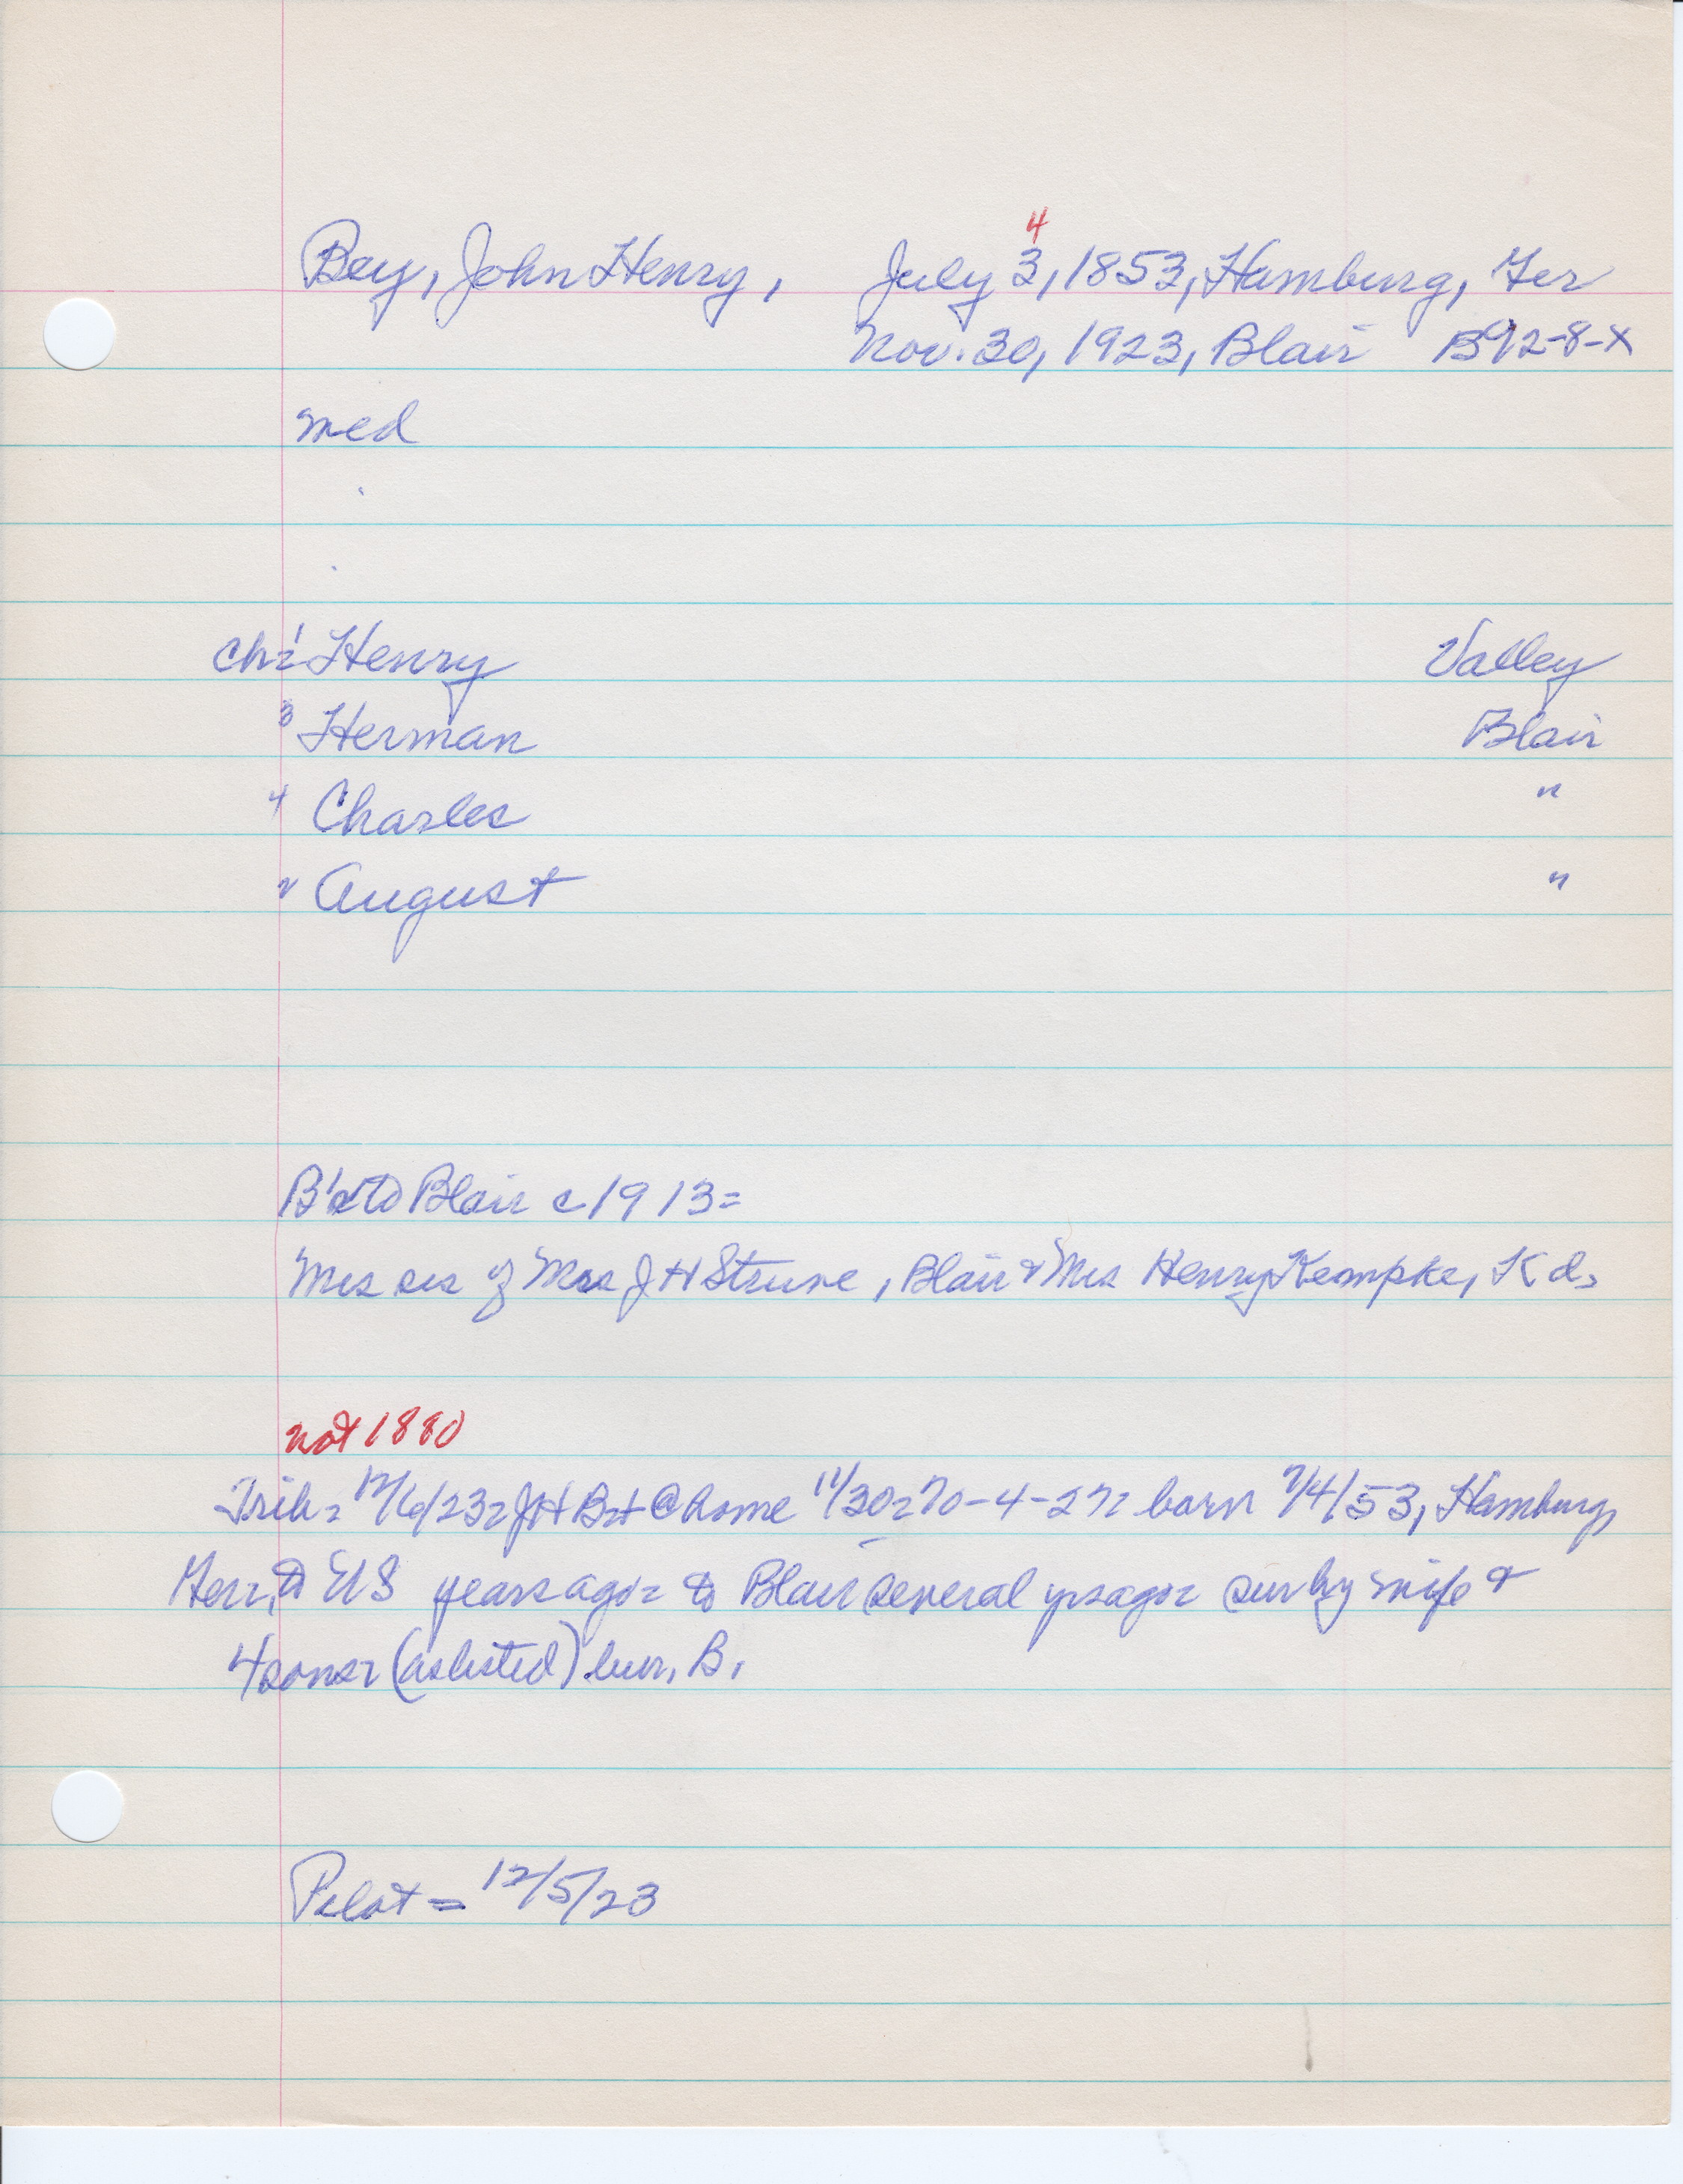 4
Bey, John Henry, July 3, 1853, Hamburg, Ger
Nov. 30, 1923, Blair B92-8-X
med
ch= 1 Henry Valley
3 Herman Blair
4 Charles "
2 August "
to Blair c1913=
Mrs sis of Mrs J H Struve, Blair & Mrs Henry Kempke, Kd.
not 1880
Trib= 12/6/23= JH B @ home 11/30= 70-4-27= born 7/4/53, Hamburg,
Ger, to US years ago= to Blair several yrs ago= sur by wife &
4 sons= (as listed) bur. B.
Pilot = 12/5/23